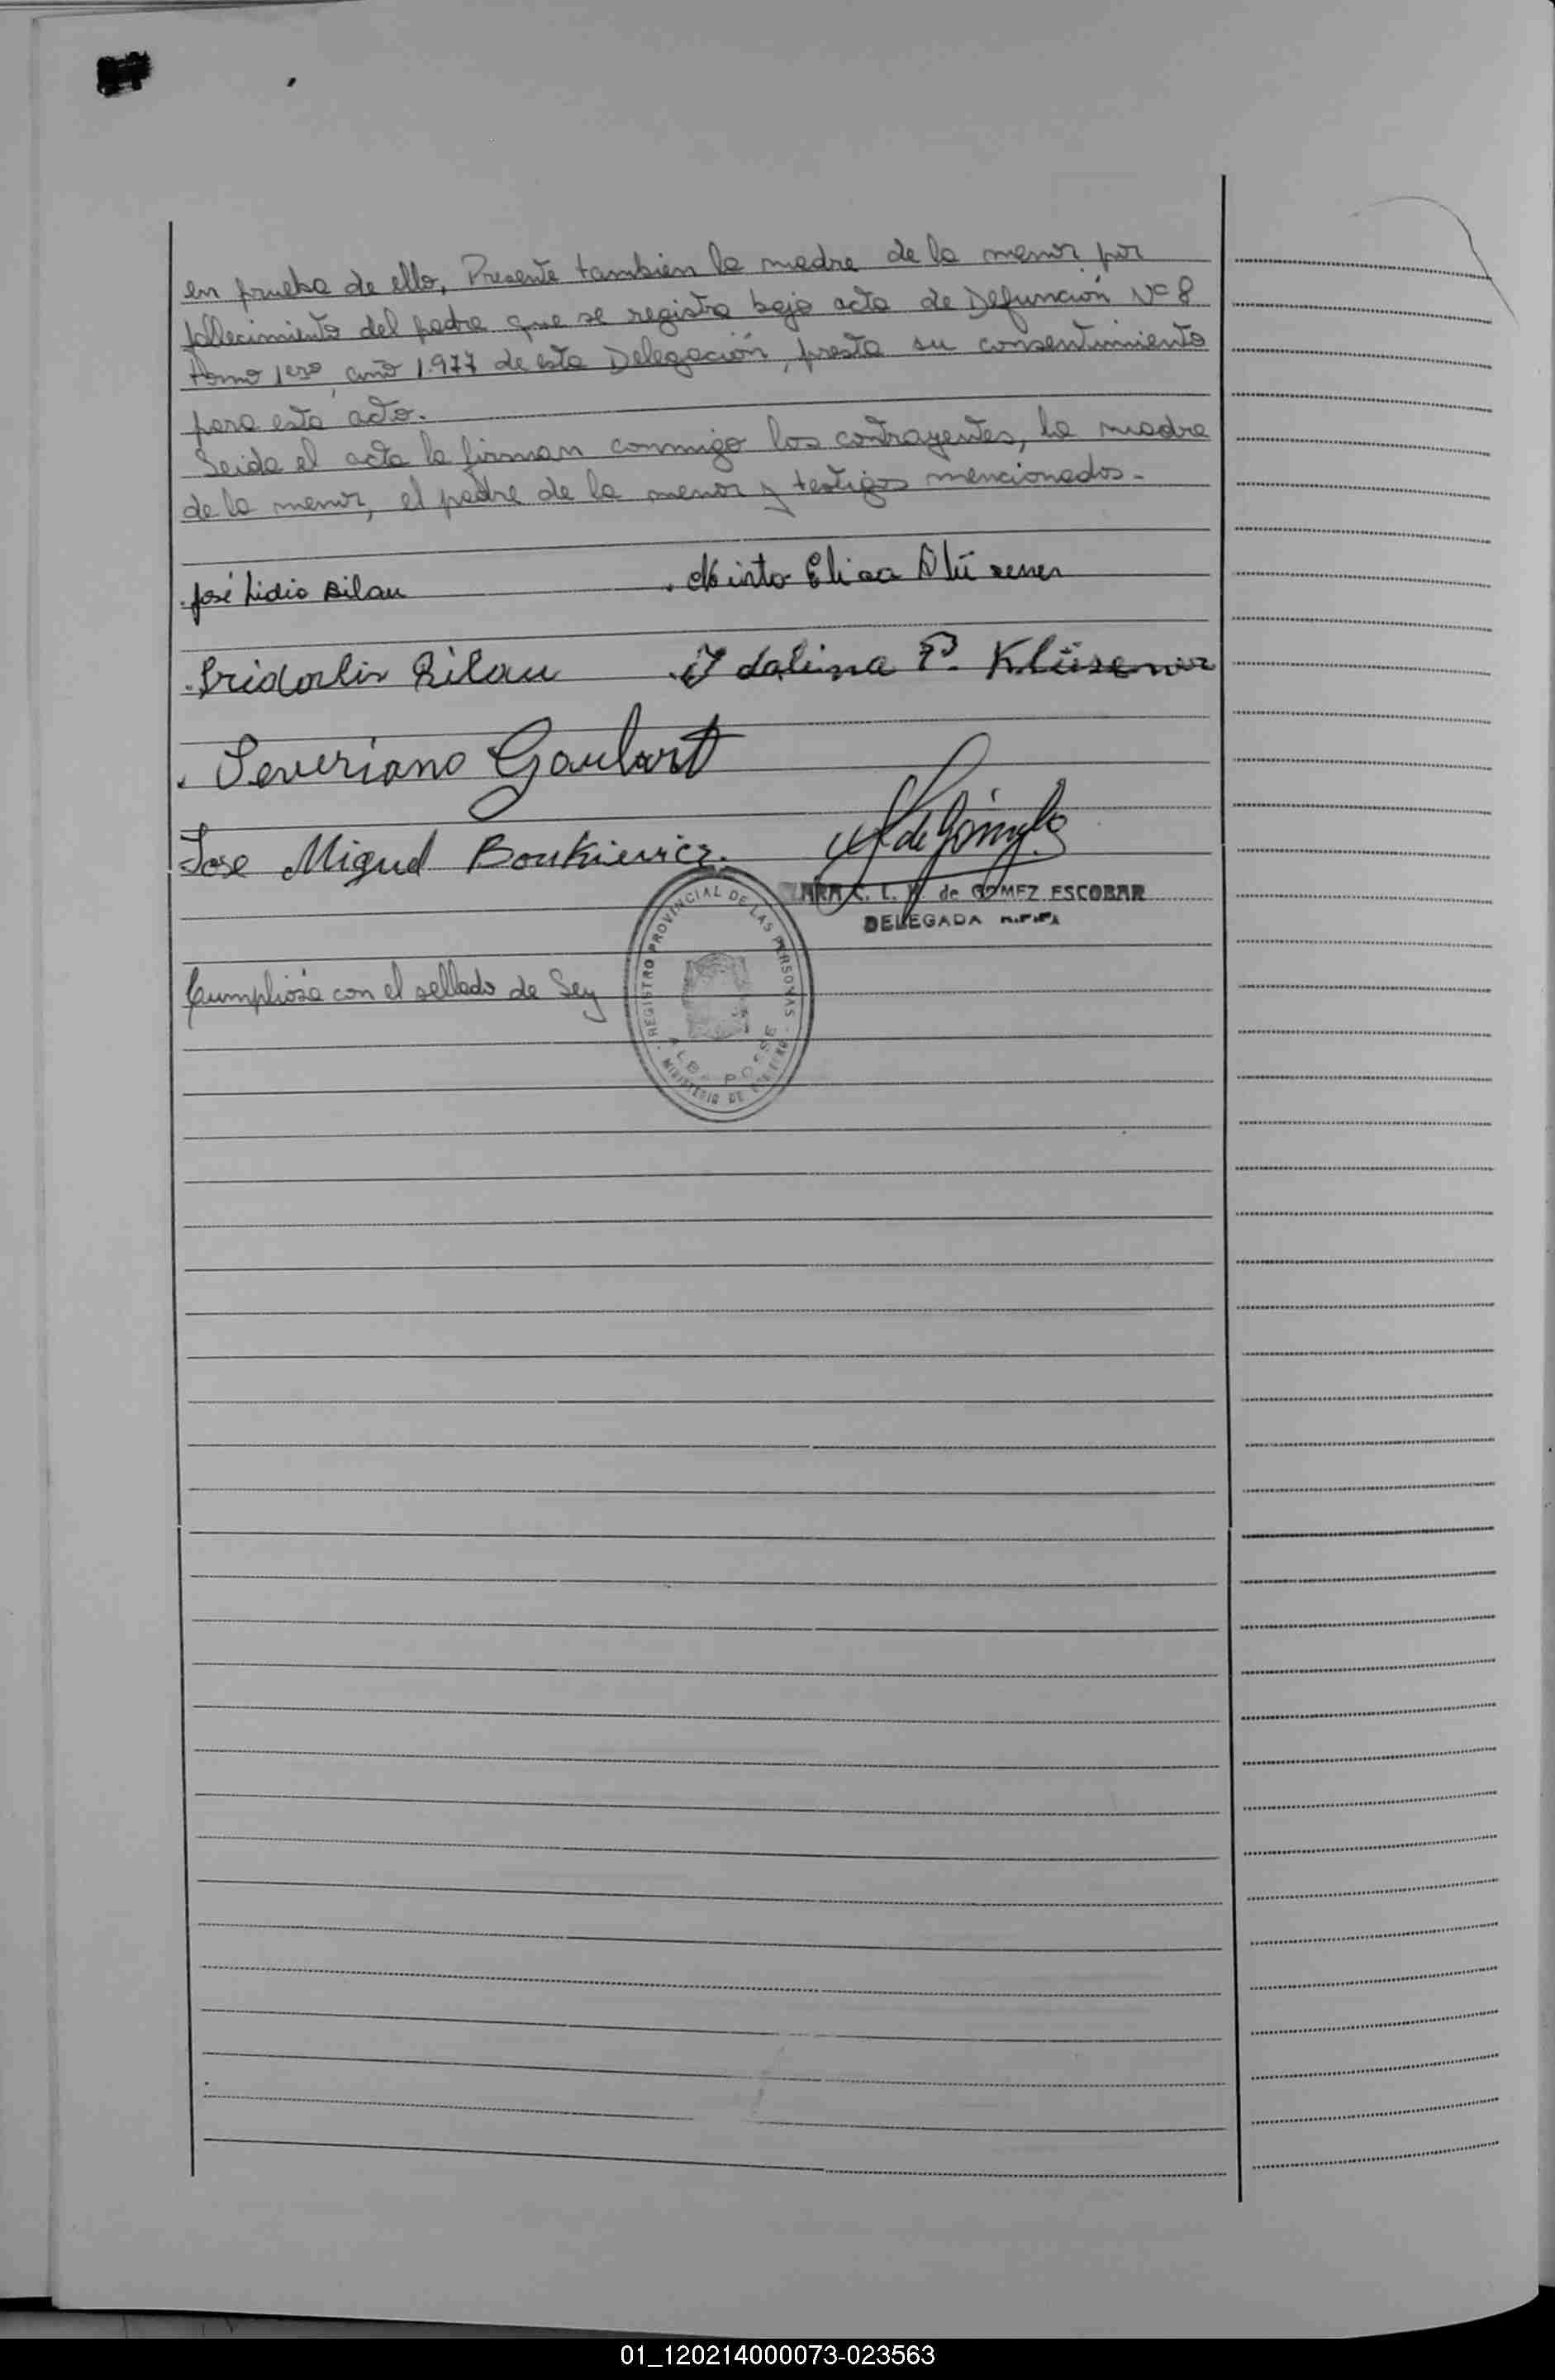 en prueba de ello, Presente tambien la madre de la menor por
fallecimiento del padre que se registra bajo acta de Defunción Nº 8
Tomo 1ero, año 1.977 de esta Delegación, presta su consentimiento
para esta acto.
Leida el acta la firman conmigo los contrayentes, la madre
de la menor, el padre de la menor y testigos mencionados.
José Lidio Bilau
Elisa Klüsener
Bilau
Idalina P. Klüsener
Severiano Goulart
Jose Miguel Boukievicz.
C. L. de GOMEZ ESCOBAR
DELEGADA
REGISTRO PROVINCIAL DE LAS PERSONAS
Cumpliose con el sellado de Ley
ALBA POSSE
MINISTERIO DE GOBIERNO
01_120214000073-023563